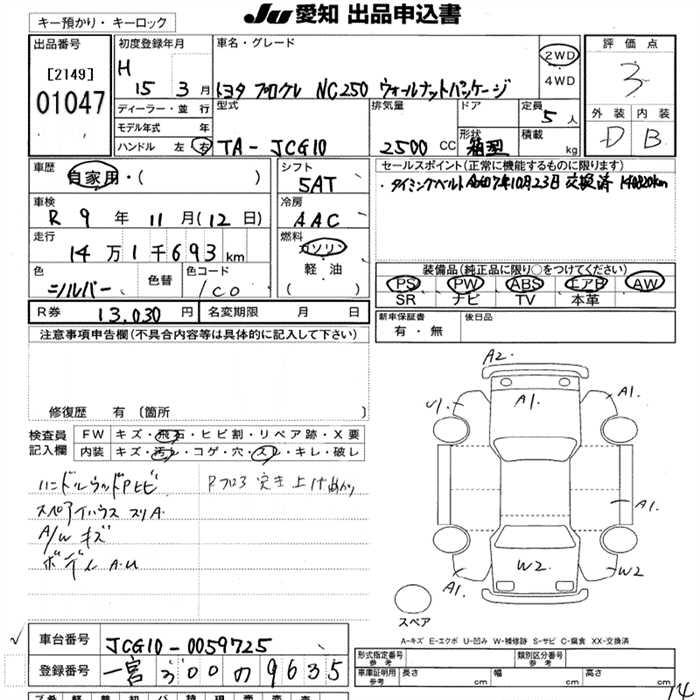 キー預かり・キーロック
JU 愛知 出品申込書
出品番号
[2149]
01047
初度登録年月
H 15 3 月
ディーラー・並行
モデル年式 年
ハンドル 左 右
車名・グレード
トヨタ プログレ NC250 ウォールナットパッケージ
2WD
4WD
型式
TA-JCG10
排気量
2500 CC
ドア
形状
箱型
定員
5 人
積載
kg
評価点
3
外装 内装
D B
車歴
自家用・( )
シフト
5AT
車検
R 9 年 11 月 (12 日)
冷房
AAC
走行
14 万 1 千 693 km
燃料
ガソリン
軽油
( )
色
シルバー
色替
色コード
1C0
セールスポイント(正常に機能するものに限ります)
・タイミングベルト 令和7年10月23日 交換済 140820km
装備品(純正品に限り○をつけてください)
PS PW ABS エアB AW
SR ナビ TV 本革
R券 13,030 円
名変期限 月 日
新車保証書
有・無
後日品
注意事項申告欄(不具合内容等は具体的に記入して下さい)
修復歴 有 [箇所 ]
検査員
記入欄
FW キズ・飛石・ヒビ割・リペア跡・X要
内装 キズ・汚レ・コゲ・穴・スレ・キレ・破レ
ハンドルウッドPヒビ
Pフロア突き上げあり
スペアタイハウス スリA
A/W キズ
ボディ A.U
A2.
A1.
U1.
A1.
A1.
W2
W2
スペア
A-キズ E-エクボ U-凹み W-補修跡 S-サビ C-腐食 XX-交換済
車台番号
JCG10-0059725
登録番号
一宮 300 の 9635
形式指定番号
参考
類別区分番号
参考
車庫証明用
参考
長さ cm
幅 cm
高さ cm